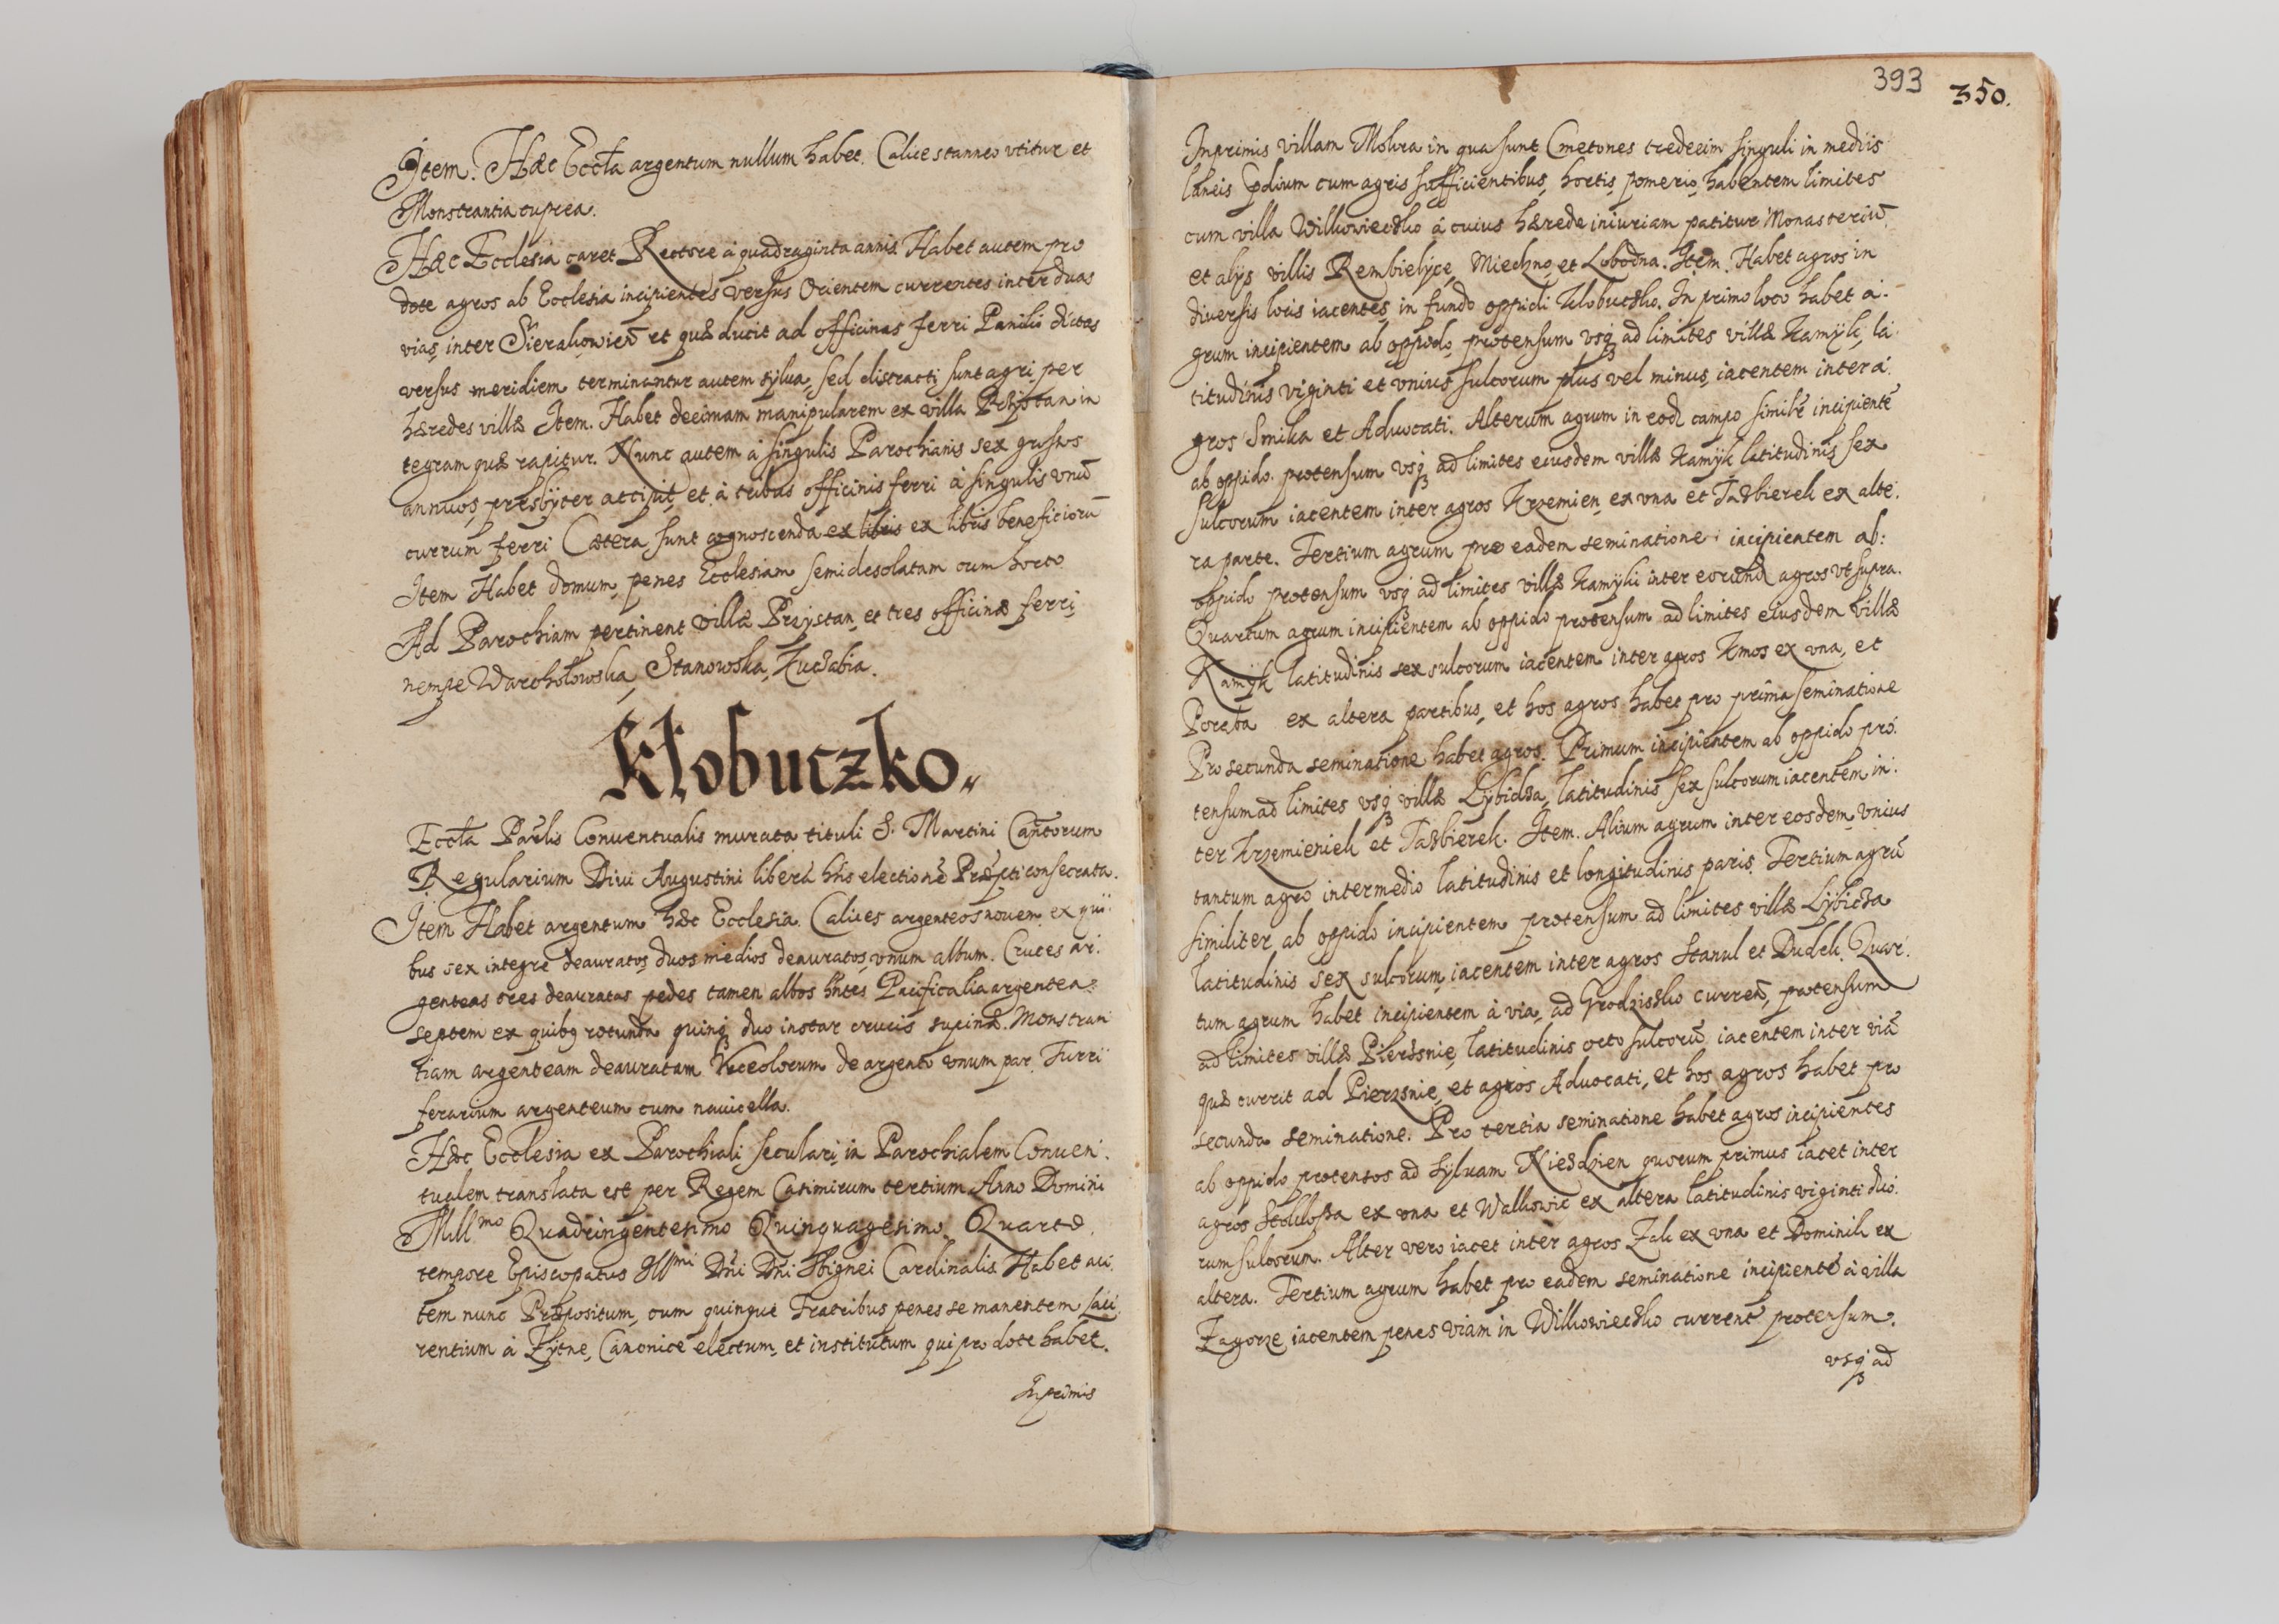 Item. Hæc Eccła argentum nullum habet. Calice stanneo vtitur et
Monstrantia cuprea.
Hæc Ecclesia caret Rectore à quadraginta annis. Habet autem pro
dote agros ab Ecclesia incipientes versus Orientem currentes inter duas
vias, inter Sierakowien̄ et quæ ducit ad officinas ferri Paniki dictas
versus meridiem terminantur autem sylua, sed distracti sunt agri, per
hæredes villæ Item. Habet decimam manipularem ex villa Przystan in
tegram quæ rapitur. Nunc autem à singulis Parochianis sex grossos
annuos, presbÿter accipit, et à tribus officinis ferri à singulis vnū
currum ferri Cætera sunt cognoscenda ex libris ex libris beneficiorū
Item Habet domum, penes Ecclesiam semidesolatam cum horto
Ad Parochiam pertinent villæ Przystan, et tres officinæ ferri,
nempe Warcholowska, Stanowska, Kuczabia.
Kłobuczko.
Eccła Parlis Conuentualis murata tituli S. Martini Canorum
Regularium Diui Augustini liberā hn̄s electionē Præpti consecrata.
Item Habet argentum hæc Ecclesia. Calices argenteos nouem ex qui
bus sex integre deauratos, duos medios deauratos, vnum album. Cruces ar
genteas tres deauratas pedes tamen albos hn̄tes Pacificalia argentea
septem ex quibꝫ rotunda quinqꝫ duo instar crucis supinæ. Monstran
tiam argenteam deauratam Vrceolorum de argento vnum par. Turri
ferarium argenteum cum nauicella.
Hæc Ecclesia ex Parochiali seculari, in Parochialem Conuen
tualem translata est per Regem Casimirum tertium Anno Domini
Mill<sup>mo</sup> Quadringentesimo Quinquagesimo Quarto
tempore Episcopatus Ill<sup>mi</sup> Dn̄i Dn̄i Sbignei Cardinalis Habet au
tem nunc Præpositum, cum quinque Fratribus penes se manentem Lau
rentium à Żytne, Canonice electum, et institutum qui pro dote habet.
Inprimis
393
350.
Inprimis villam Mokra in qua sunt Cmetones tredecim singuli in mediis
laneis Pdium cum agris sufficientibus, hortis, pomerio, habentem limites
cum villa Wilkowieczko à cuius hærede iniuriam patitur Monasteriū
et alÿs villis Rembielÿce, Miechno, et Lobodna. Item. Habet agros in
diuersis locis iacentes, in fundo oppidi Klobuczko. In primo loco habet a
grum incipientem ab oppido, protensum vsqꝫ ad limites villæ Kamÿk, la
titudinis viginti et vnius sulcorum plus vel minus, iacentem inter a
gros Smika et Aduocati. Alterum agrum in eod. campo similē incipientē
ab oppido protensum vsqꝫ ad limites eiusdem villæ Kamÿk latitudinis sex
sulcorum iacentem inter agros Krzemien, ex vna et Jazbierek ex alte
ra parte. Tertium agrum pro eadem seminatione incipientem ab
oppido protensum vsqꝫ ad limites villæ Kamÿki inter eorund. agros vt supra.
Quartum agrum incipientem ab oppido protensum ad limites eiusdem villæ
Kamÿk latitudinis sex sulcorum iacentem inter agros Kmos ex vna, et
Poręba ex altera partibus, et hos agros habet pro prima seminatione
Pro secunda seminatione habet agros. Primum incipientem ab oppido pro
tensum ad limites vsqꝫ villæ Lÿbidza, latitudinis sex sulcorum iacentem in
ter Krzemieniek et Jazbierek. Item. Alium agrum inter eosdem, vnius
tantum agro intermedio latitudinis et longitudinis paris. Tertium agrū
similiter ab oppido incipientem protensum ad limites villæ Lÿbidza
latitudinis sex sulcorum, iacentem inter agros Stanul et Dudek. Quar
tum agrum habet incipientem à via, ad Grodzisko curren̄, protensum
ad limites villæ Pierzsnie, latitudinis octo sulcorū, iacentem inter viā
quæ currit ad Pierzsnie, et agros Aduocati, et hos agros habet pro
secunda seminatione. Pro tertia seminatione habet agros incipientes
ab oppido protentos ad sÿluam Niezdzien quorum primus iacet inter
agros Stoklossa ex vna et Walkowic ex altera latitudinis viginti duo
rum sulcorum. Alter vero iacet inter agros Zak ex vna et Dominik ex
altera. Tertium agrum habet pro eadem seminatione incipientē à villa
Zagorze, iacentem penes viam in Wilkowieczko current. protensum
vsqꝫ ad